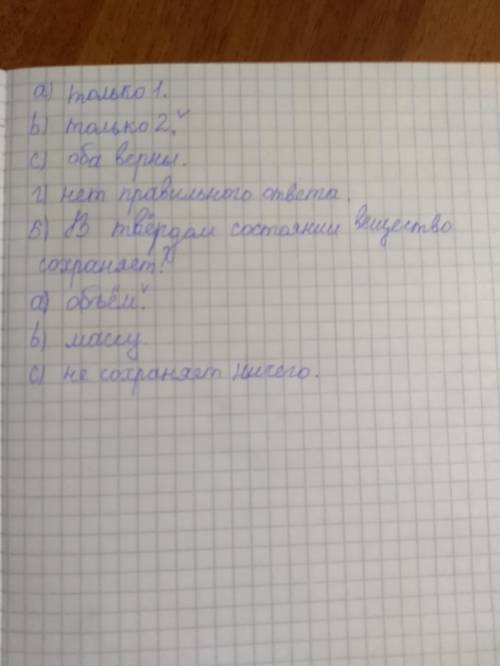 а) только 1.
b) только 2.
c) оба верны.
г) нет правильного ответа.
5) В твёрдом состоянии вещество
сохраняет?
а) объём.
b) массу.
c) не сохраняет ничего.